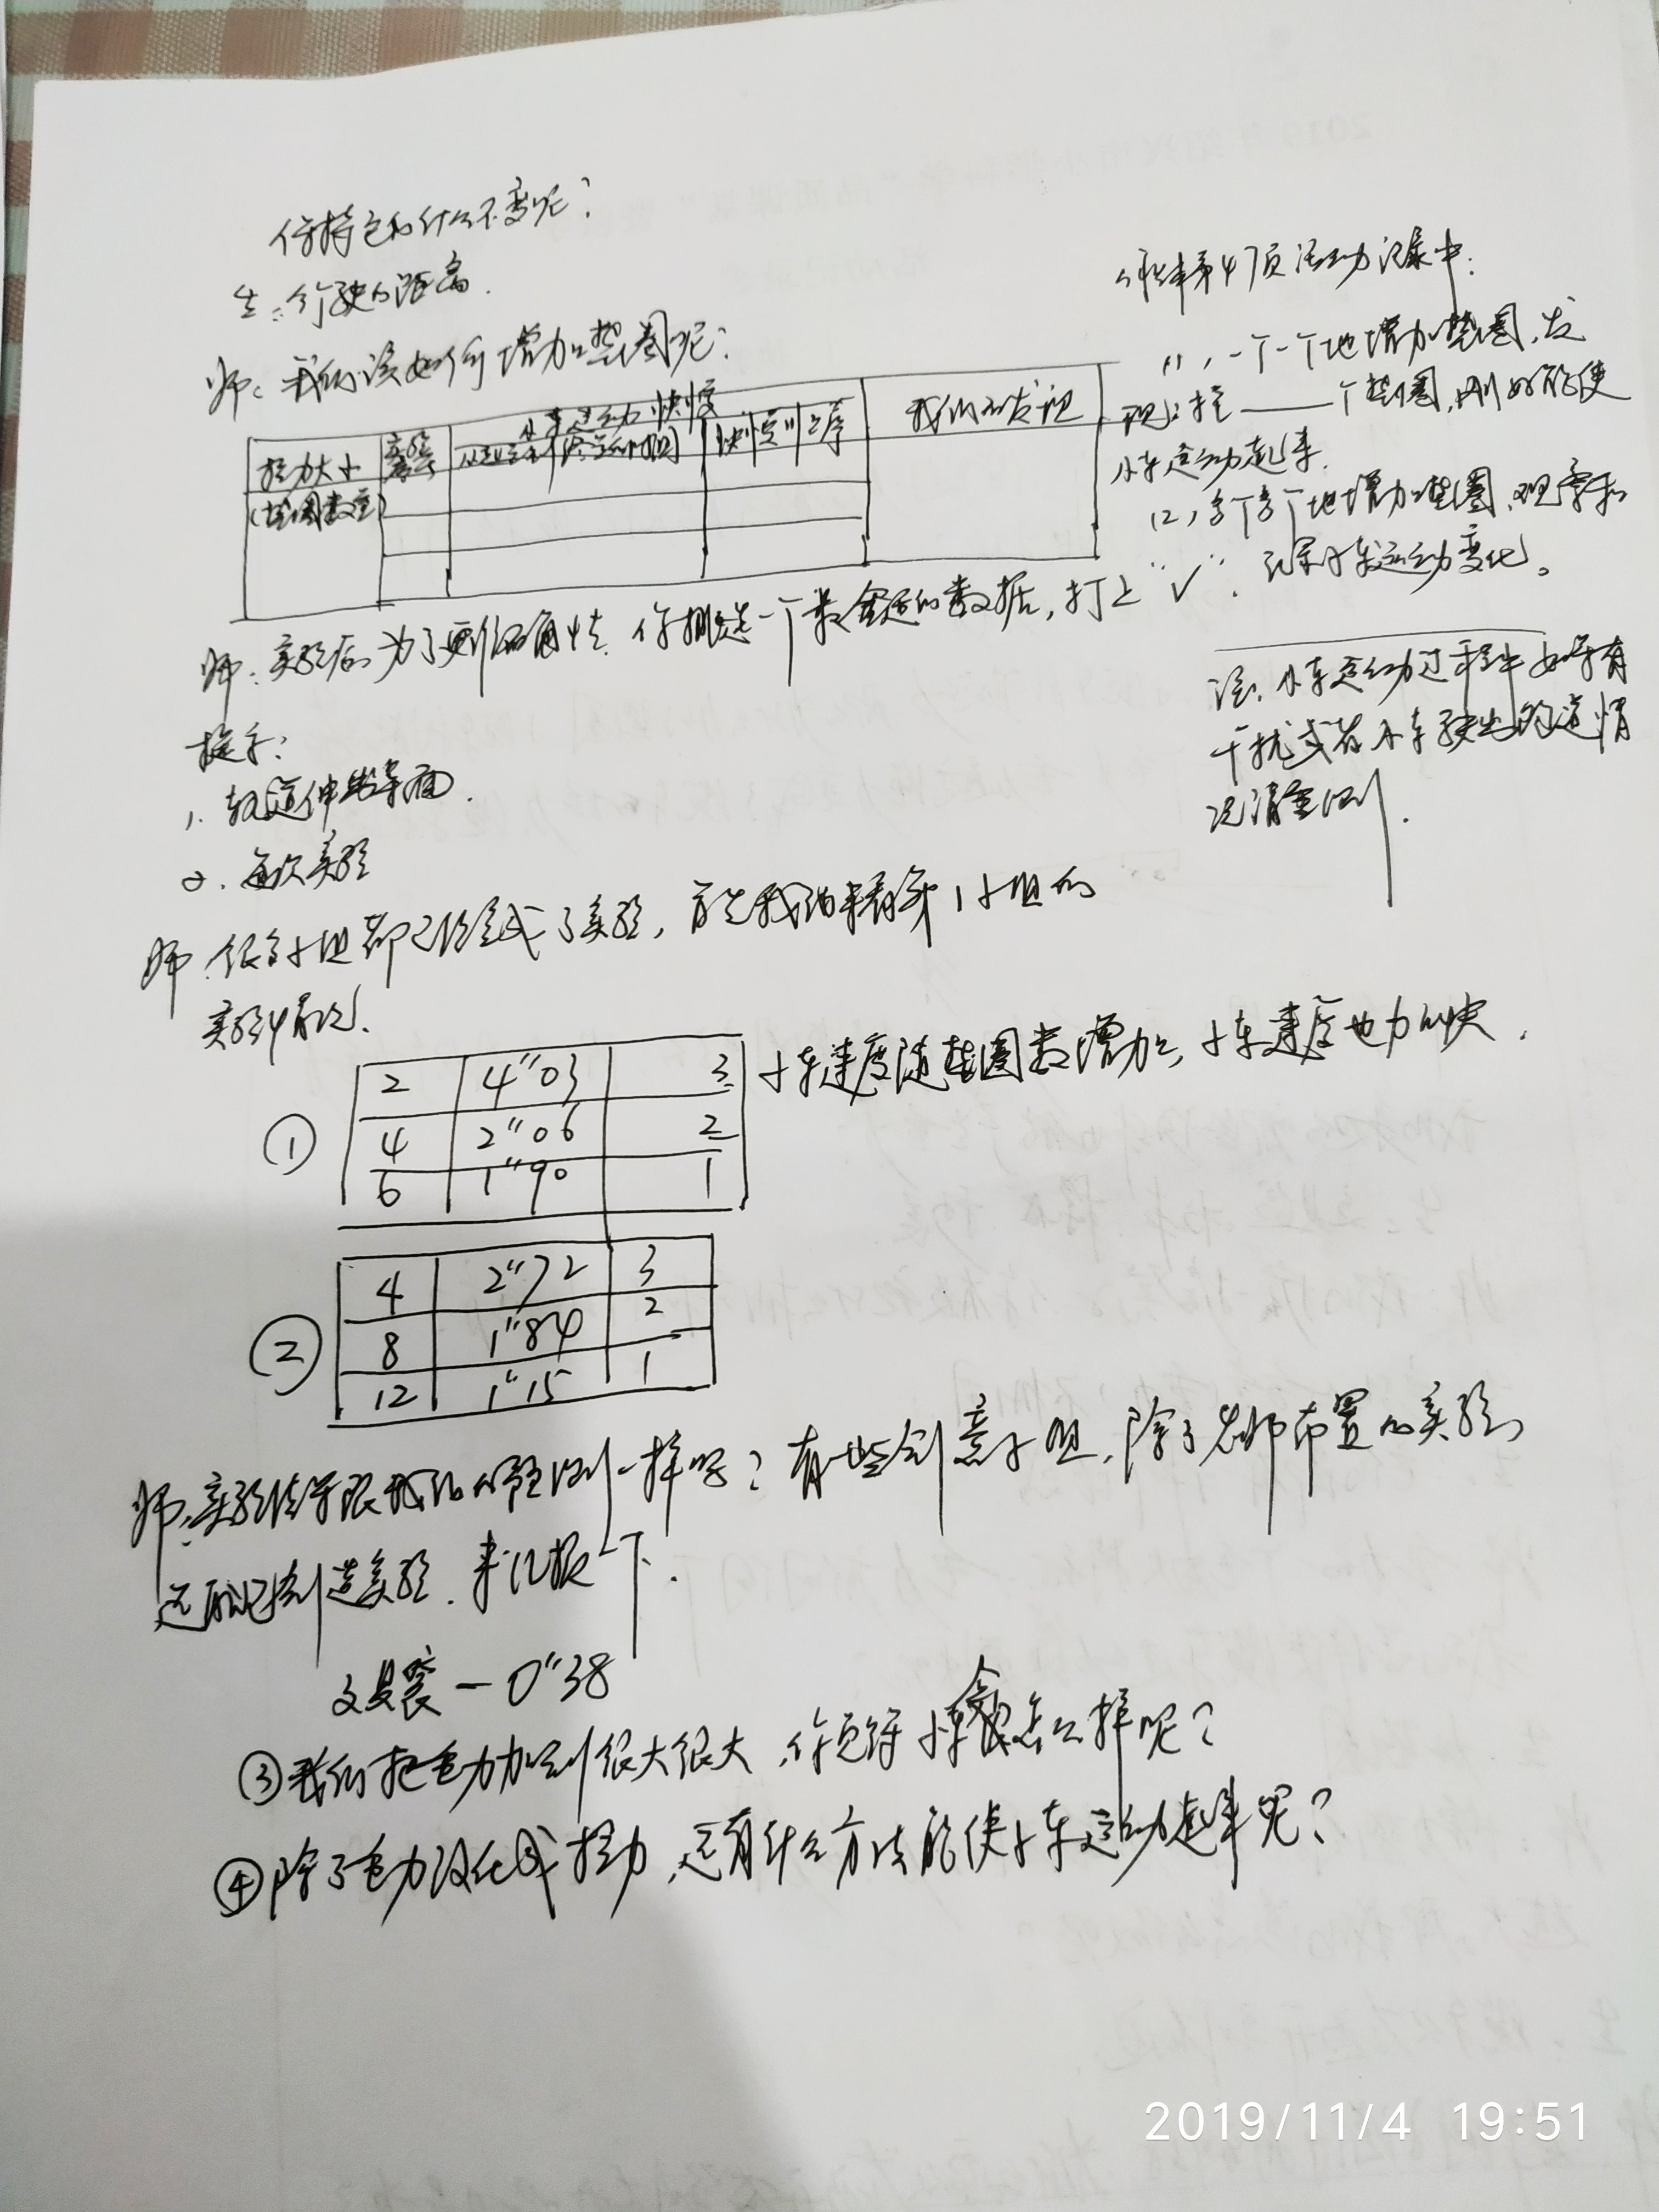 保持它的什么不变呢？
生：行驶的距离.
师：我们该如何增加垫圈呢？
拉力大小
(垫圈数量)
实验
小车运动快慢
快慢排序
我们的发现
第47页活动记录中：
(1)，一个一个地增加垫圈,发
现：挂——个垫圈,刚好能使
小车运动起来.
(2)，多个多个地增加垫圈,观察和
记录小车运动变化。
师：实验后,为了更准确性,你挑选一个最合适的数据,打上“√”.
注：小车运动过程中如果有
干扰或者小车驶出轨道情
况请重测.
提示：
1. 轨道伸出桌面.
2. 每次实验
师：很多小组都已经完成了实验, 首先我们来看第1小组的
实验情况.
① 2 4"03 3
4 2"06 2
6 1"90 1
小车速度随垫圈数增加, 小车速度也加快.
② 4 2"72 3
8 1"84 2
12 1"15 1
师：实验结果跟我们的推测一样吗？有一些创意小组, 除了老师布置的实验,
还创造实验. 来汇报一下.
一 0"38
③我们把重力加到很大很大,你觉得小车会怎么样呢？
④除了重力没化成拉力,还有什么方法能使小车运动起来呢？
2019/11/4 19:51